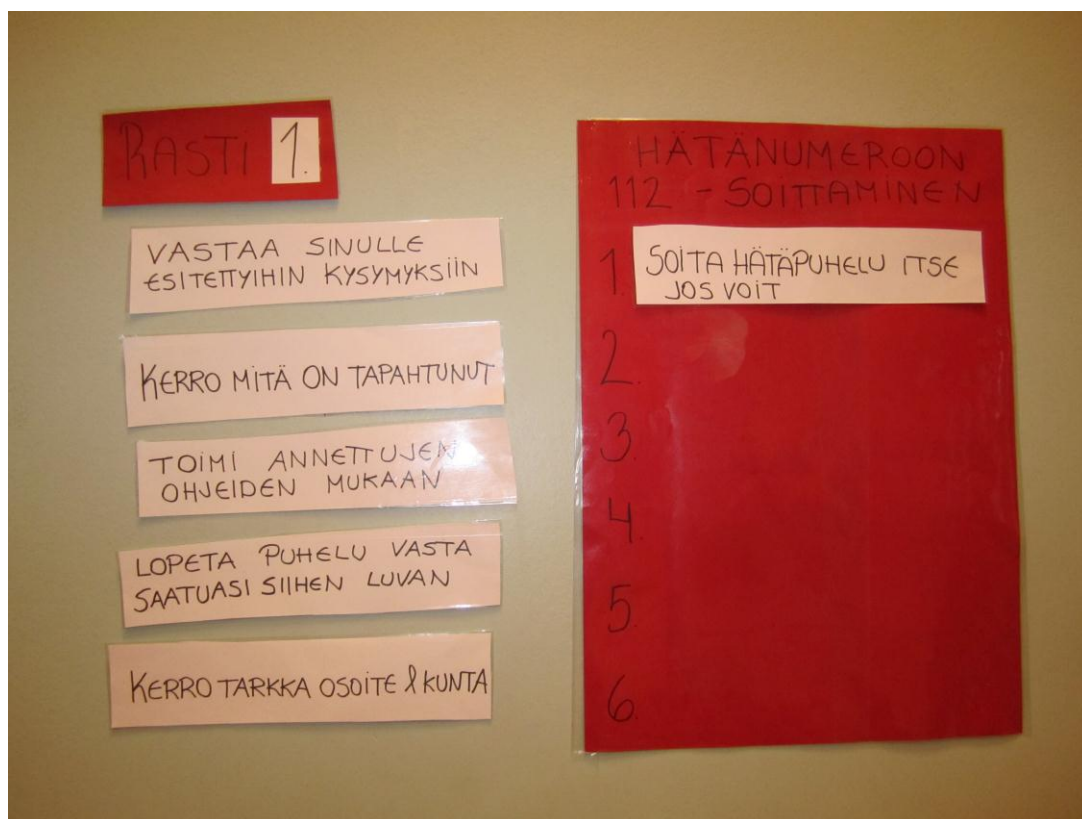 RASTI 1.
VASTAA SINULLE
ESITETTYIHIN KYSYMYKSIIN
KERRO MITÄ ON TAPAHTUNUT
TOIMI ANNETTUJEN
OHJEIDEN MUKAAN
LOPETA PUHELU VASTA
SAATUASI SIIHEN LUVAN
KERRO TARKKA OSOITE & KUNTA
HÄTÄNUMEROON
112 - SOITTAMINEN
1. SOITA HÄTÄPUHELU ITSE
JOS VOIT
2.
3.
4.
5.
6.